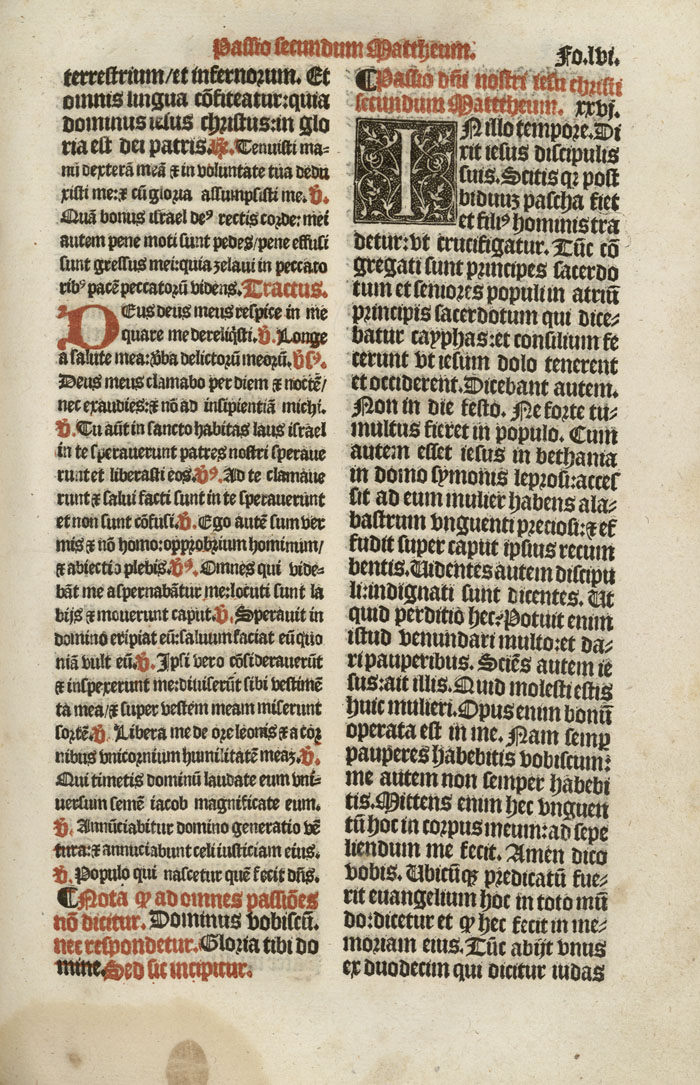 Passio secundum Mattheum.
Fo.lvi.
terrestrium/et infernorum. Et
omnis lingua cõfiteatur:quia
dominus iesus christus:in glo
ria est dei patris.℟. Tenuisti ma⸗
nũ dexterã meã ⁊ in voluntate tua dedu
xisti me:⁊ cũ gloria assumpsisti me.℣.
Quã bonus israel deꝰ rectis corde: mei
autem pene moti sunt pedes/pene effusi
sunt gressus mei:quia zelaui in peccato
ribꝰ pacẽ peccatorũ videns. Tractus.
DEus deus meus respice in me
quare me dereliq̇sti.℣. Longe
a salute mea: v̾ba delictorũ meorũ.℣ꝰ.
Deus meus clamabo per diem ⁊ noctẽ/
nec exaudies:⁊ nõ ad insipientiã michi.
℣. Tu aũt in sancto habitas laus israel
in te sperauerunt patres nostri speraue
runt et liberasti eos.℣ꝰ. Ad te clamaue
runt ⁊ salui facti sunt in te sperauerunt
et non sunt cõfusi.℣. Ego autẽ sum ver
mis ⁊ nõ homo:opprobrium hominum/
⁊ abiectio plebis.℣ꝰ. Omnes qui vide⸗
bãt me aspernabãtur me:locuti sunt la
bijs ⁊ mouerunt caput.℣. Sperauit in
domino eripiat eũ:saluum faciat eũ quo
niã vult eũ.℣. Ipsi vero cõsiderauerũt
⁊ inspexerunt me:diuiserũt sibi vestimẽ
ta mea/⁊ super vestem meam miserunt
sortẽ.℣. Libera me de ore leonis ⁊ a cor
nibus vnicornium humilitatẽ meaʒ.℣.
Qui timetis dominũ laudate eum vni⸗
uersum semẽ iacob magnificate eum.
℣. Annũciabitur domino generatio vẽ
tura:⁊ annuciabunt celi iusticiam eius.
℣. Populo qui nascetur quẽ fecit dñs.
¶Nota ꝙ ad omnes passiões
nõ dicitur. Dominus vobiscũ.
nec respondetur. Gloria tibi do
mine. Sed sic incipitur.
¶Passio dñi nostri iesu christi
secundum Mattheum. xxvj.
IN illo tempore. Di
xit iesus discipulis
suis. Scitis qꝛ post
biduuʒ pascha fiet
et filiꝰ hominis tra
detur:vt crucifigatur. Tũc cõ
gregati sunt principes sacerdo
tum et seniores populi in atriũ
principis sacerdotum qui dice⸗
batur cayphas:et consilium fe
cerunt vt iesum dolo tenerent
et occiderent. Dicebant autem.
Non in die festo. Ne forte tu⸗
multus fieret in populo. Cum
autem esset iesus in bethania
in domo symonis leprosi:acces
sit ad eum mulier habens ala⸗
bastrum vnguenti preciosi:⁊ ef
fudit super caput ipsius recum
bentis. Uidentes autem discipu
li:indignati sunt dicentes. Ut
quid perditio hec? Potuit enim
istud venundari multo:et da⸗
ri pauperibus. Sciẽs autem ie
sus:ait illis. Quid molesti estis
huic mulieri. Opus enim bonũ
operata est in me. Nam semp̲
pauperes habebitis vobiscum:
me autem non semper habebi
tis. Mittens enim hec vnguen
tũ hoc in corpus meum:ad sepe
liendum me fecit. Amen dico
vobis. Ubicũqꝫ predicatũ fue⸗
rit euangelium hoc in toto mũ
do:dicetur et ꝙ hec fecit in me⸗
moriam eius. Tũc abijt vnus
ex duodecim qui dicitur iudas